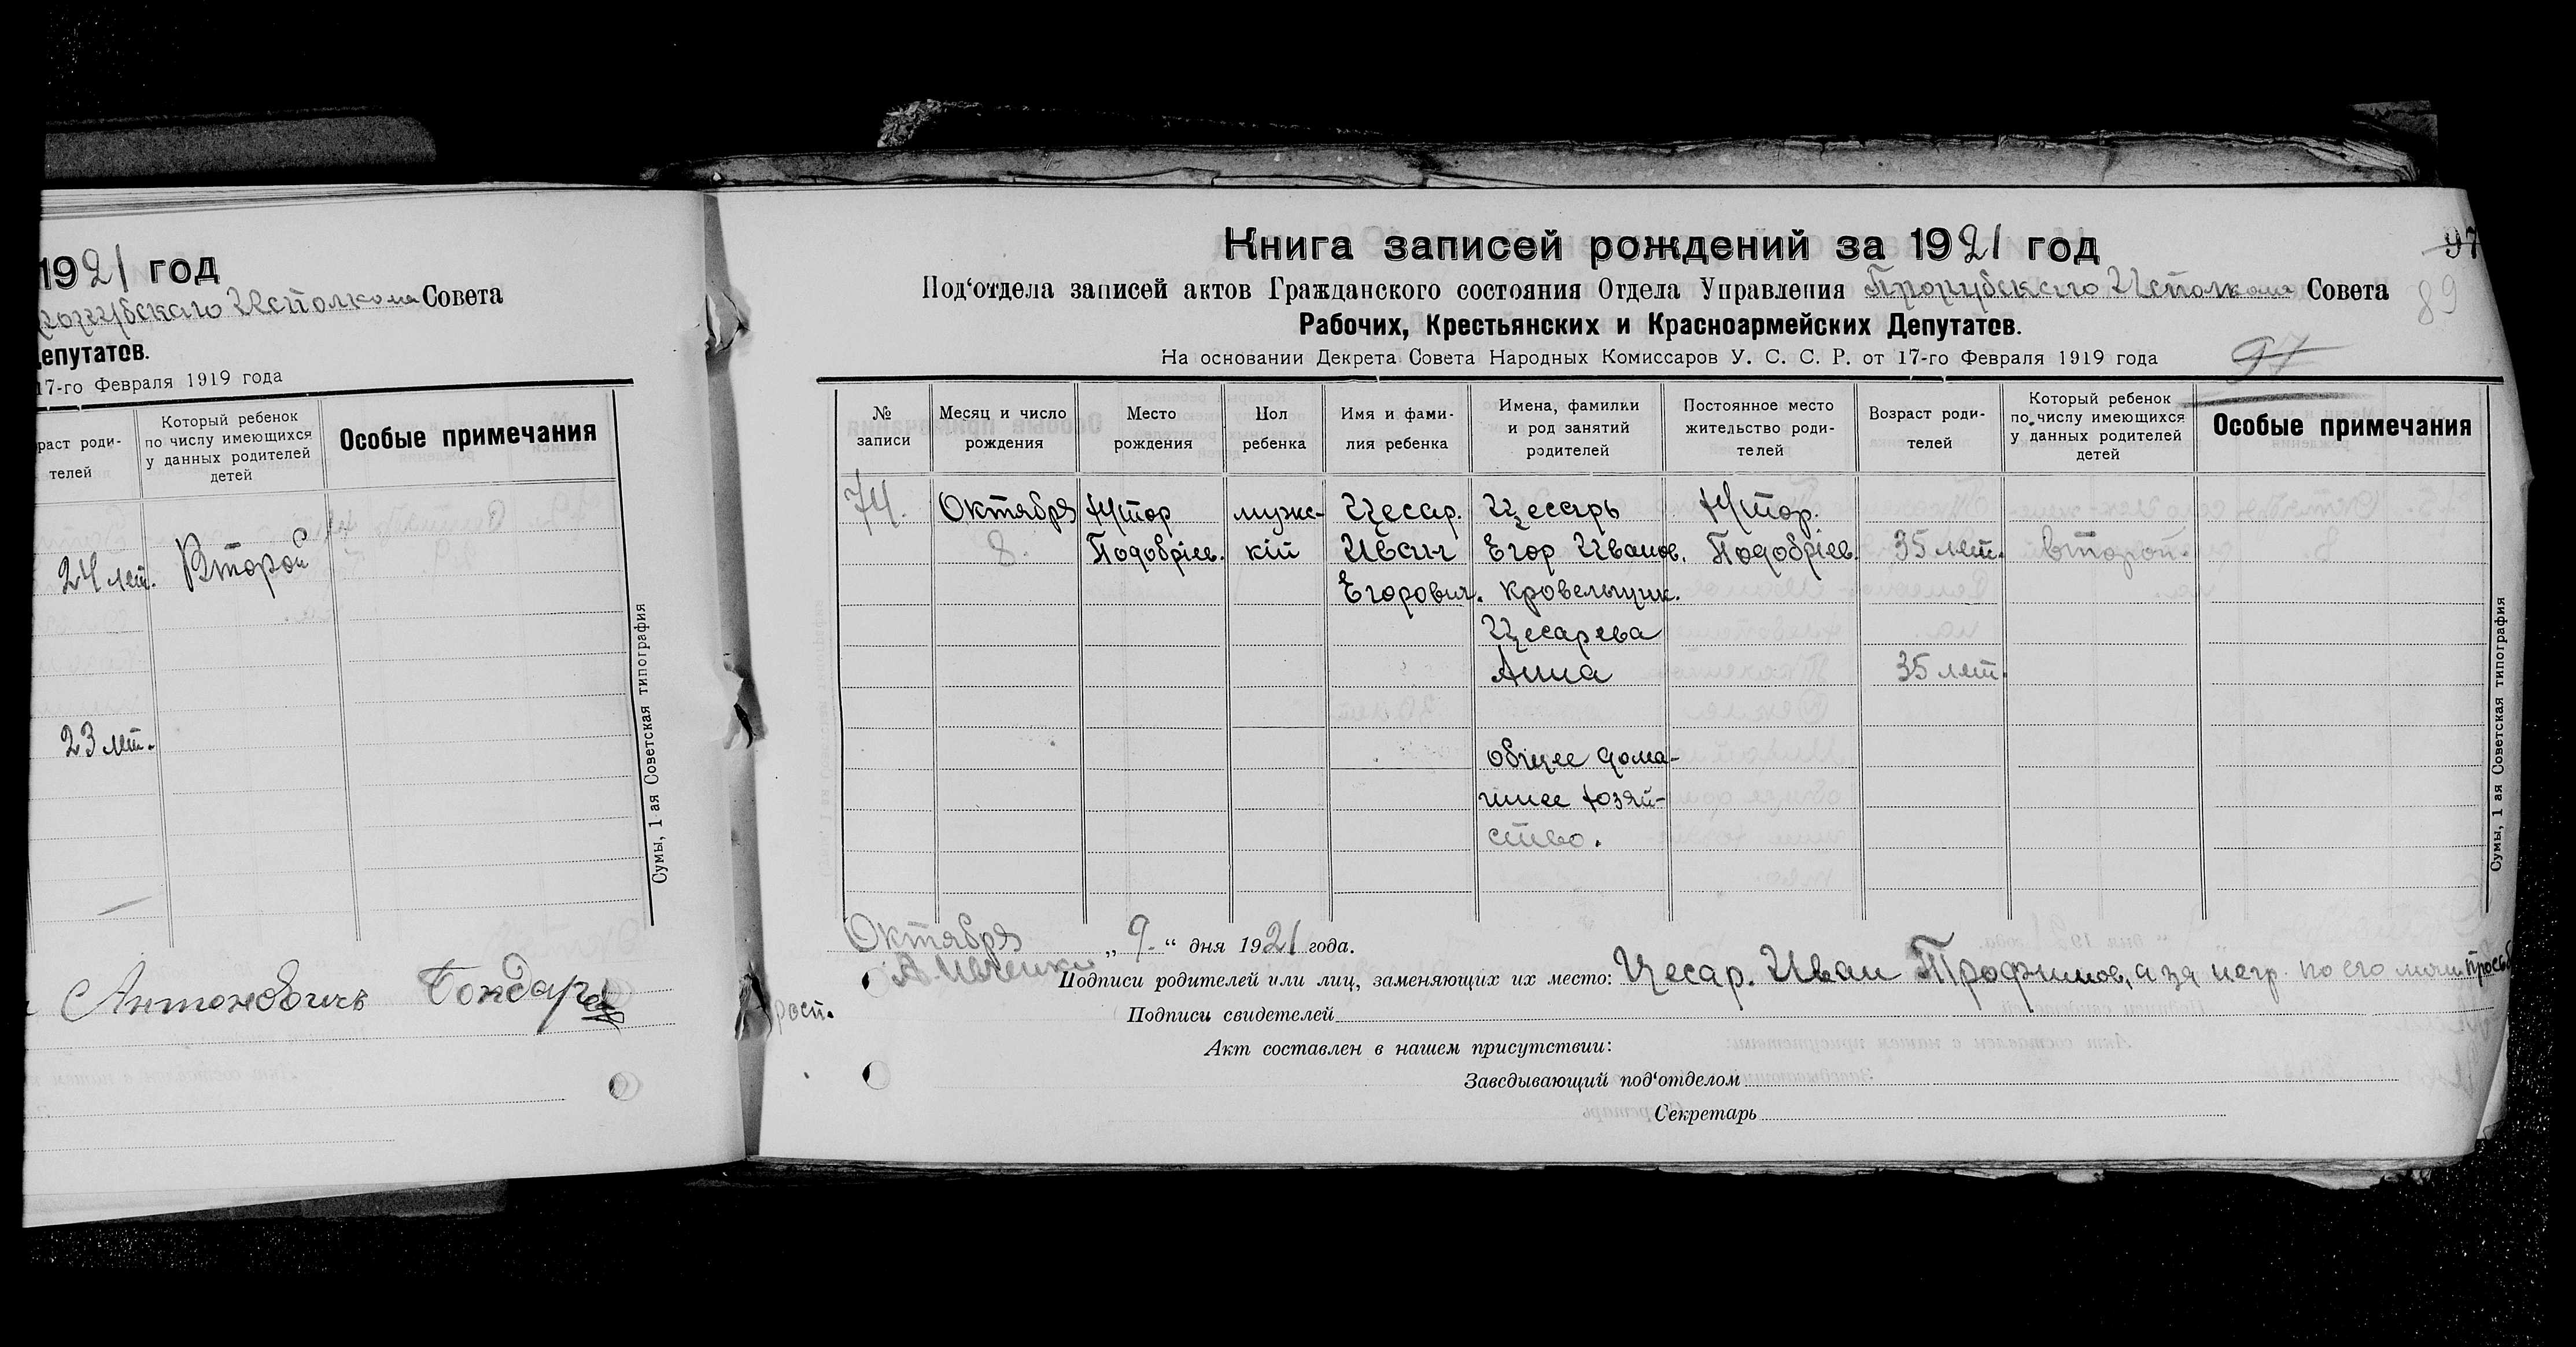 1921 год
Исполкома Совета
Депутатов.
17-го Февраля 1919 года
раст роди-
телей
Который ребенок
по числу имеющихся
у данных родителей
детей
Особые примечания
24 лет.
Второй
23 лет.
Сумы, 1-ая Советская типография
Антоновичъ Бондарь
97
Книга записей рождений за 1921 год
Под‘отдела записей актов Гражданского состояния Отдела Управления Прорубского Исполкома Совета
89
Рабочих, Крестьянских и Красноармейских Депутатов.
На основании Декрета Совета Народных Комиссаров У. С. С. Р. от 17-го Февраля 1919 года
97
№
записи
Месяц и число
рождения
Место
рождения
Пол
ребенка
Имя и фами-
лия ребенка
Имена, фамилии
и род занятий
родителей
Постоянное место
жительство роди-
телей
Возраст роди-
телей
Который ребенок
по числу имеющихся
у данных родителей
детей
Особые примечания
74.
Октября
8.
Хутор
Подобріев.
мужс-
кій
Цесар.
Иван
Егорович.
Цесарь
Егор Иванов.
Кровельщик.
Цесарева
Анна
общее дома-
шнее хозяй-
ство.
Хутор.
Подобріев.
35 лет.
35 лет.
второй.
Сумы, 1 ая Советская типография
Октября „ 9. “ дня 1921 года.
Подписи родителей или лиц, заменяющих их место: Цесар. Иван Трофимов, а за негр. по его личн. просьб
росп.
Подписи свидетелей
Акт составлен в нашем присутствии:
Заведывающий под‘отделом
Секретарь